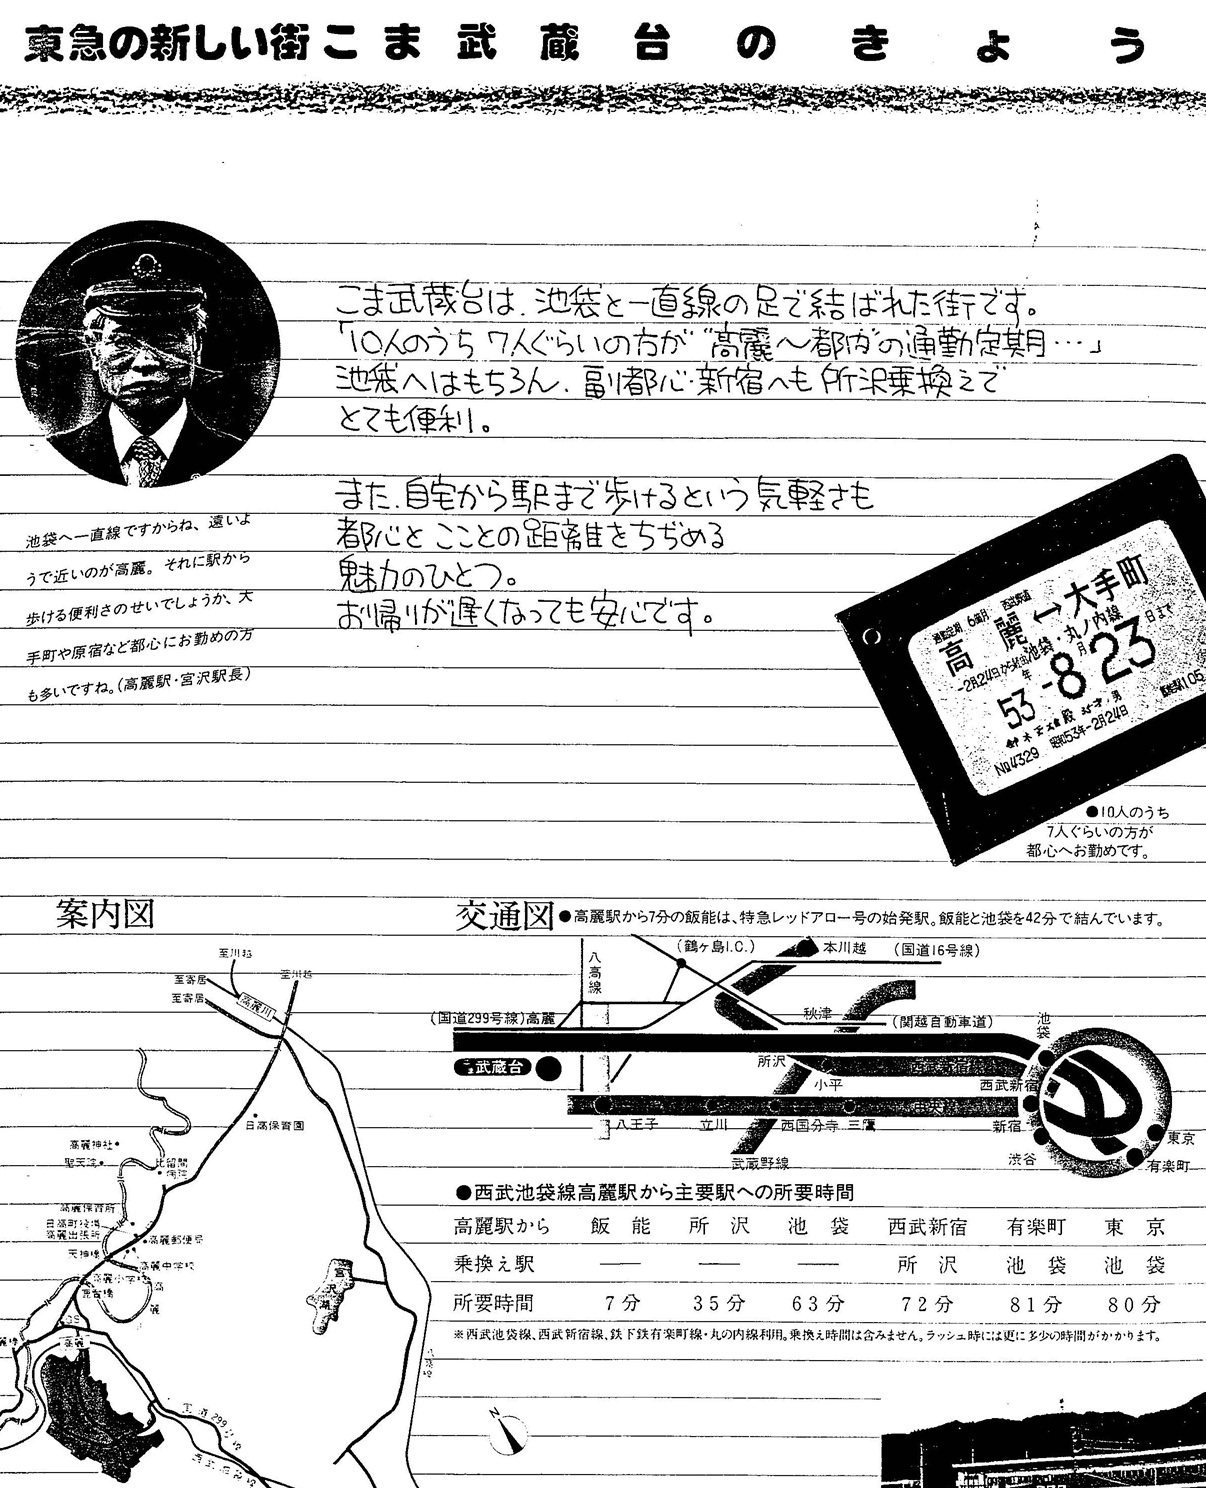 東急の新しい街こま武蔵台のきょう
こま武蔵台は、池袋と一直線の足で結ばれた街です。
「10人のうち7人ぐらいの方が“高麗〜都内”の通勤定期…」
池袋へはもちろん、副都心・新宿へも所沢乗換えで
とても便利。
また、自宅から駅まで歩けるという気軽さも
都心とこことの距離をちぢめる
魅力のひとつ。
お帰りが遅くなっても安心です。
池袋へ一直線ですからね、遠いよ
うで近いのが高麗。それに駅から
歩ける便利さのせいでしょうか、大
手町や原宿など都心にお勤めの方
も多いですね。(高麗駅・宮沢駅長)
通勤定期 6箇月 西武鉄道
高麗↔大手町
池袋・丸ノ内線
-2月24日から
53年-8月23日まで
No4329 昭和53年-2月24日
●10人のうち
7人ぐらいの方が
都心へお勤めです。
案内図
至川越
至川越
至寄居
至寄居
高麗川
日高保育園
高麗神社
聖天院
比留間病院
高麗保育所
日高町役場
高麗出張所
高麗郵便局
天神橋
高麗中学校
高麗小学校
高麗
高麗
宮沢湖
国道299号線
西武池袋線
N
交通図
●高麗駅から7分の飯能は、特急レッドアロー号の始発駅。飯能と池袋を42分で結んでいます。
八高線
(鶴ヶ島I.C.)
本川越
(国道16号線)
(国道299号線)高麗
秋津
(関越自動車道)
池袋
こま武蔵台
所沢
小平
西武新宿線
西武新宿
八王子
立川
西国分寺
三鷹
中央線
新宿
武蔵野線
渋谷
東京
有楽町
●西武池袋線高麗駅から主要駅への所要時間
高麗駅から 飯能 所沢 池袋 西武新宿 有楽町 東京
乗換え駅 — — — 所沢 池袋 池袋
所要時間 7分 35分 63分 72分 81分 80分
※西武池袋線、西武新宿線、鉄下鉄有楽町線・丸の内線利用。乗換え時間は含みません。ラッシュ時には更に多少の時間がかかります。